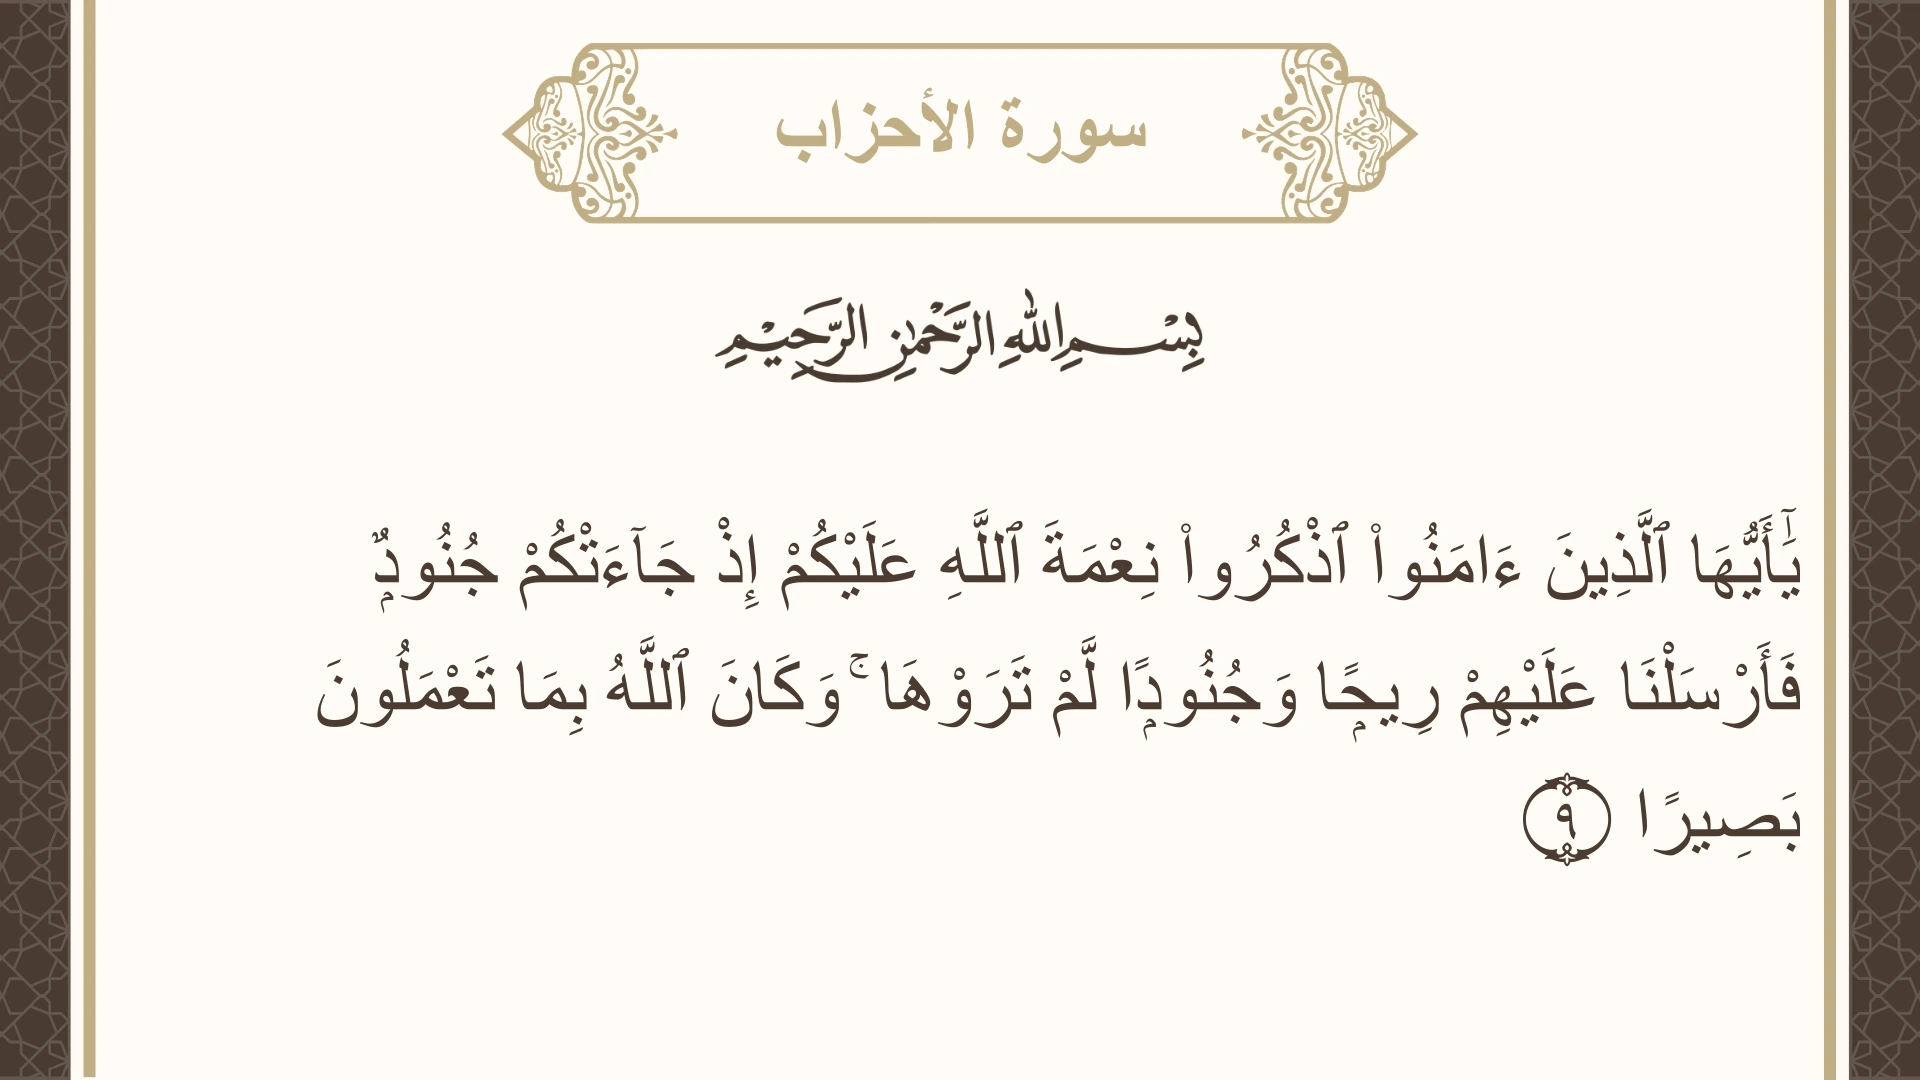 سورة الأحزاب
بِسْمِ اللهِ الرَّحْمٰنِ الرَّحِيْمِ
يَٰٓأَيُّهَا ٱلَّذِينَ ءَامَنُوا۟ ٱذْكُرُوا۟ نِعْمَةَ ٱللَّهِ عَلَيْكُمْ إِذْ جَآءَتْكُمْ جُنُودٌۭ
فَأَرْسَلْنَا عَلَيْهِمْ رِيحًۭا وَجُنُودًۭا لَّمْ تَرَوْهَا ۚ وَكَانَ ٱللَّهُ بِمَا تَعْمَلُونَ
بَصِيرًا ٩